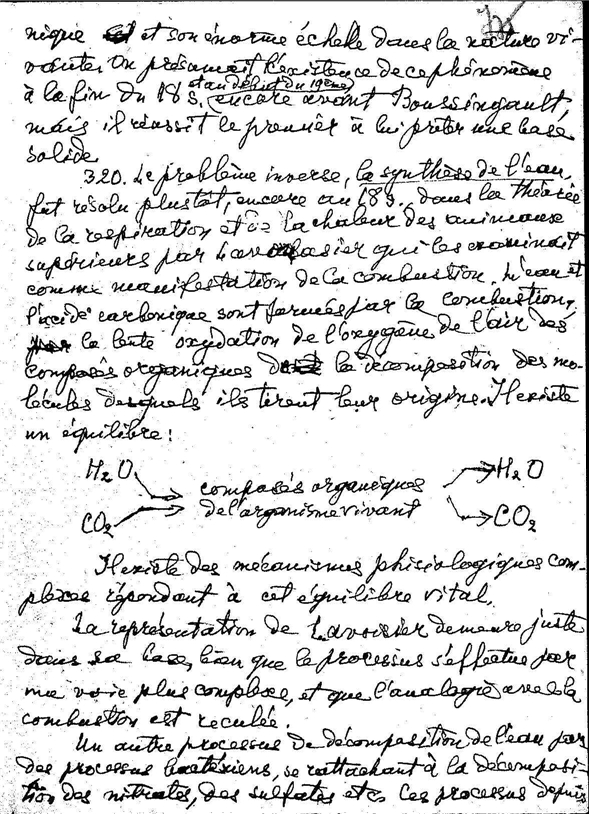 nique et son énorme échelle dans la nature vi-
vante. On présumait l'existence de ce phénomène
et au début du 19ème
à la fin du 18 s., encore avant Boussingault,
mais il réussit le premier à lui prêter une base
solide.
320. Le problème inverse, la synthèse de l'eau,
fut résolu plustôt, encore au 18 s. dans la théorie
de la respiration et de la chaleur des animaux
supérieurs par Lavoisier qui les examinait
comme manifestation de la combustion. L'eau et
l'acide carbonique sont formés par la combustion,
la lente oxydation de l'oxygène de l'air des
composés organiques la décomposition des mo-
lécules desquels ils tirent leur origine. Il existe
un équilibre:
H₂O composés organiques H₂O
CO₂ de l'organisme vivant CO₂
Il existe des mécanismes phisiologiques com-
plexes répondant à cet équilibre vital.
La représentation de Lavoisier demeure juste
dans sa base, bien que le processus s'effectue par
une voie plus complexe, et que l'analogie avec la
combustion est reculée.
Un autre processus de décomposition de l'eau par
des processus bactériens, se rattachant à la décomposi-
tion des nitrates, des sulfates etc. Ces processus depuis